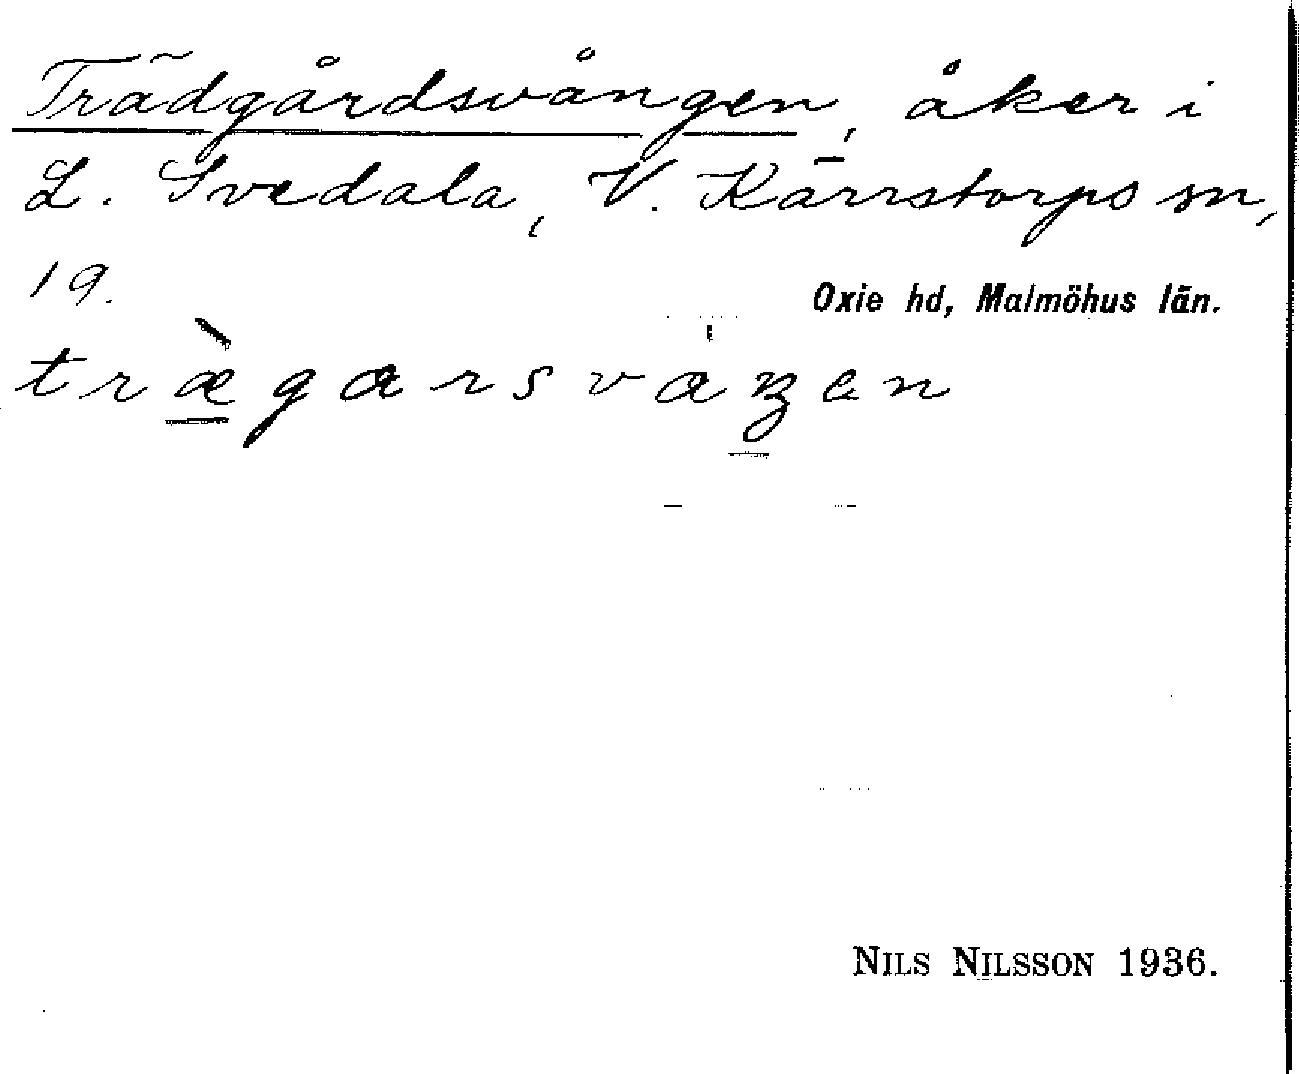 Trädgårdsvången, åker i
L. Svedala, V. Kärrstorps sn,
19.
Oxie hd, Malmöhus län.
træ̀garsvaŋen
NILS NILSSON 1936.